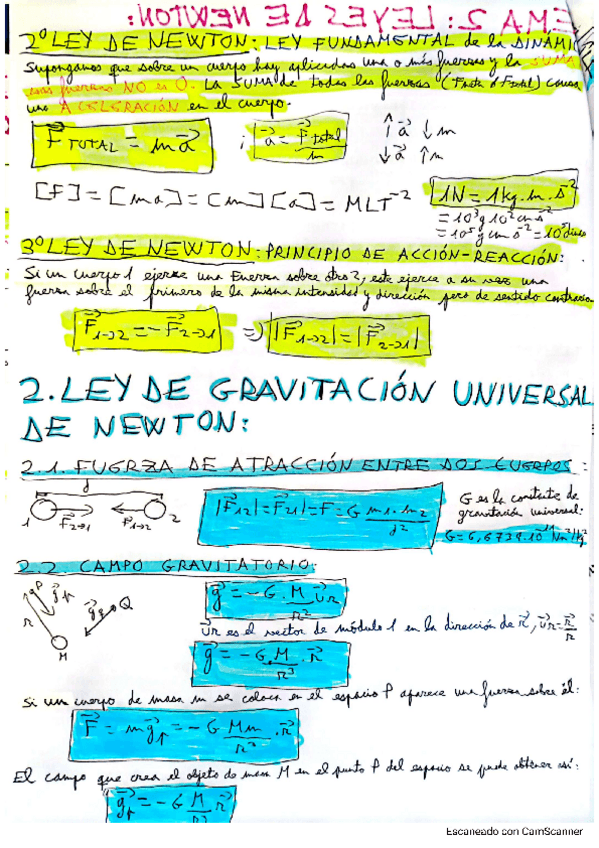 TEMA 2: LEYES DE NEWTON:
2º LEY DE NEWTON: LEY FUNDAMENTAL de la DINÁMI
Supongamos que sobre un cuerpo hay aplicadas una o más fuerzas y la SUMA
fuerzas NO es 0. LA SUMA de todas las fuerzas (Fneta o Ftotal) causa
una ACELERACIÓN en el cuerpo.
F⃗TOTAL = m a⃗ ; a⃗ = F⃗total/m ↑a⃗ ↓m
↓a⃗ ↑m
[F] = [ma] = [m][a] = MLT⁻² 1N = 1kg·m·s⁻²
= 10³g 10²cm s⁻²
= 10⁵g cm s⁻² = 10⁵ dinas
3º LEY DE NEWTON: PRINCIPIO DE ACCIÓN-REACCIÓN:
Si un cuerpo 1 ejerce una Fuerza sobre otro 2, este ejerce a su vez una
fuerza sobre el primero de la misma intensidad y dirección pero de sentido contrario
F⃗1→2 = -F⃗2→1 => |F⃗1→2| = |F⃗2→1|
2. LEY DE GRAVITACIÓN UNIVERSAL
DE NEWTON:
2.1. FUERZA DE ATRACCIÓN ENTRE DOS CUERPOS:
d
1 F⃗2→1 F⃗1→2 2
|F⃗12| = |F⃗21| = F = G m1·m2/d²
G es la constante de
gravitación universal:
G = 6,6739·10⁻¹¹ Nm²/kg²
2.2 CAMPO GRAVITATORIO:
P g⃗P r g⃗Q Q M
g⃗ = -G · M/R² u⃗r
u⃗r es el vector de módulo 1 en la dirección de r⃗, u⃗r = r⃗/r
g⃗ = -G · M/r³ · r⃗
Si un cuerpo de masa m se coloca en el espacio P aparece una fuerza sobre él:
F⃗ = m g⃗P = -G Mm/r³ · r⃗
El campo que crea el objeto de masa M en el punto P del espacio se puede obtener así:
g⃗P = -G M/r³ r⃗
Escaneado con CamScanner